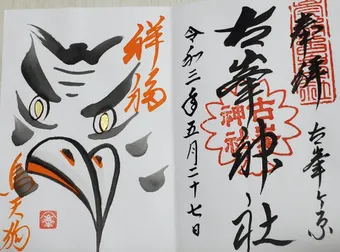 奉拝
古峯ヶ原
古峯神社
古峯
神社
令和三年五月二十七日
祥福
烏天狗